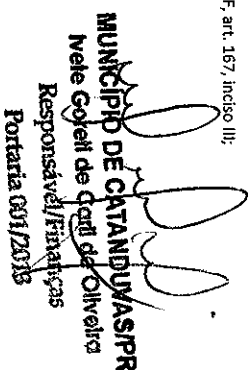 F, art. 167, inciso III;
MUNICÍPIO DE CATANDUVAS/PR
Ivete de Oliveira
Responsável/Finanças
Portaria 001/2013